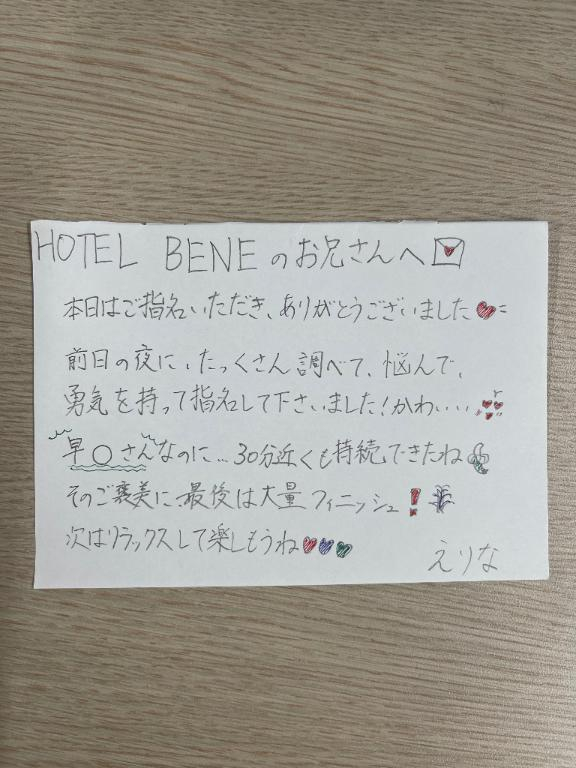 HOTEL BENEのお兄さんへ
本日はご指名いただき、ありがとうございました
前日の夜に、たっくさん調べて、悩んで、
勇気を持って指名して下さいました!かわいい、
早○さんなのに…30分近くも持続できたね
そのご褒美に、最後は大量フィニッシュ!
次はリラックスして楽しもうね
えりな